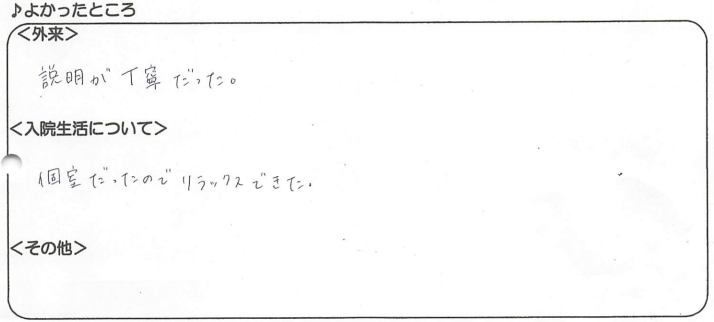 ♪よかったところ
＜外来＞
説明が丁寧だった。
＜入院生活について＞
個室だったのでリラックスできた。
＜その他＞